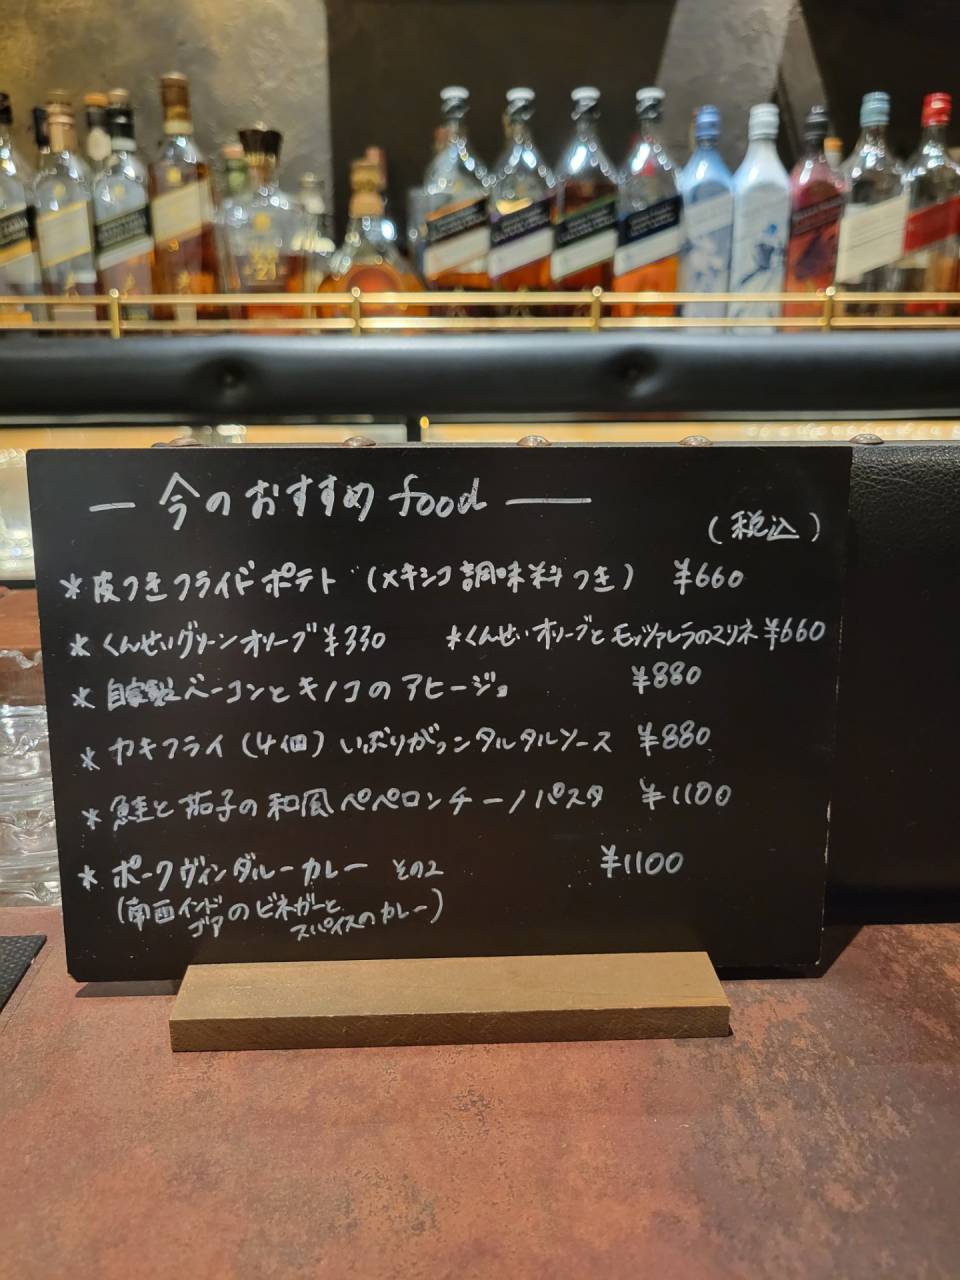 21
— 今のおすすめ food —
(税込)
* 皮つきフライドポテト (メキシコ調味料つき) ¥660
* くんせいグリーンオリーブ ¥330 * くんせいオリーブとモッツァレラのマリネ ¥660
* 自家製ベーコンとキノコのアヒージョ ¥880
* カキフライ (4個) いぶりがっこタルタルソース ¥880
* 鮭と茄子の和風ペペロンチーノパスタ ¥1100
* ポークヴィンダルーカレー その2 ¥1100
(南西インドゴアのビネガーとスパイスのカレー)